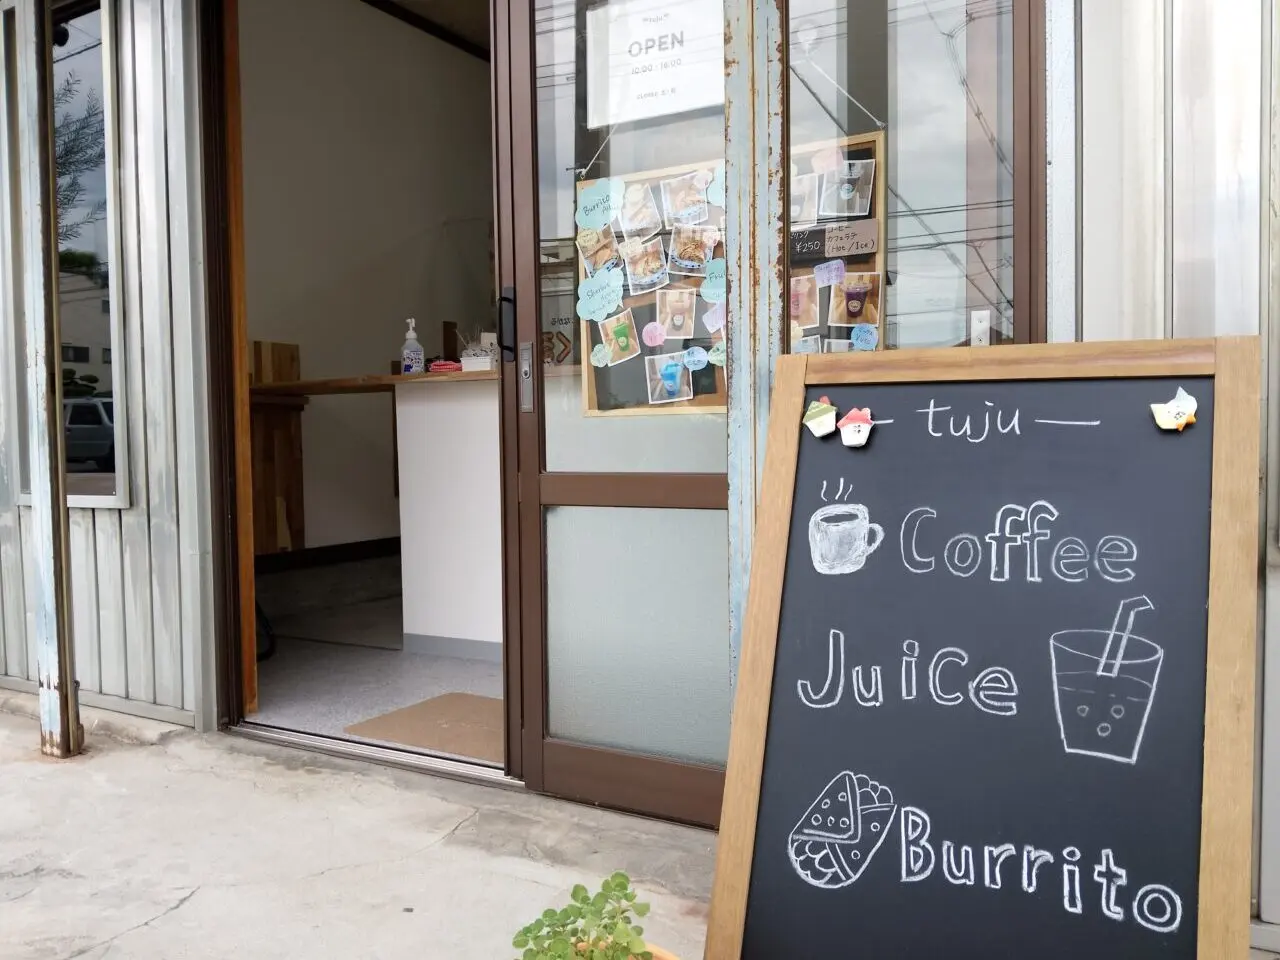 tuju
OPEN
10:00 - 16:00
Burrito
¥250
コーヒー
カフェラテ
(Hot / Ice)
— tuju —
Coffee
Juice
Burrito